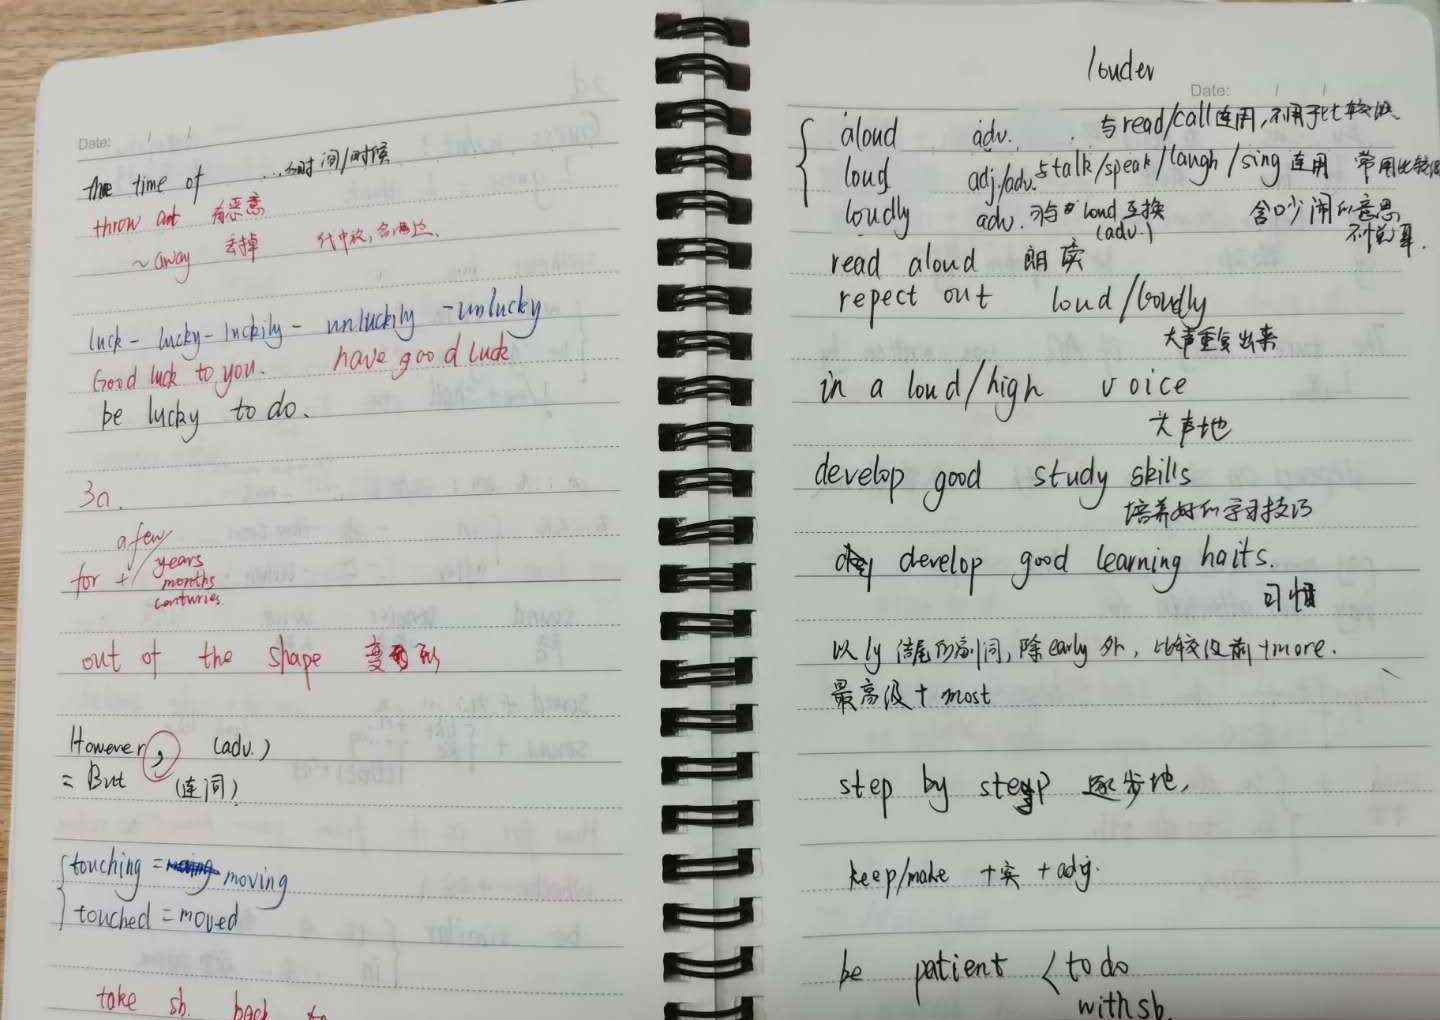 Date:
the time of ...时间/时候
throw at 有恶意
~ away 丢掉
luck - lucky - luckily - unluckily - unlucky
Good luck to you. have good luck
be lucky to do.
3a.
a few
for + / years
months
centuries
out of the shape 变形
However, (adv.)
= But (连词)
touching = moving
touched = moved
take sb. back to
louder
Date:
aloud adv. 与read/call连用,不用于比较级
loud adj./adv. 与talk/speak/laugh/sing连用 常用比较级
loudly adv. 可与loud互换 含吵闹的意思
(adv.)
read aloud 朗读
repect out loud/loudly
大声重复出来
in a loud/high voice
大声地
develop good study skills
培养好的学习技巧
develop good learning haits.
习惯
以ly结尾的副词,除early外,比较级前+more.
最高级+most
step by step 逐步地,
keep/make +宾 +adj.
be patient < to do
with sb.